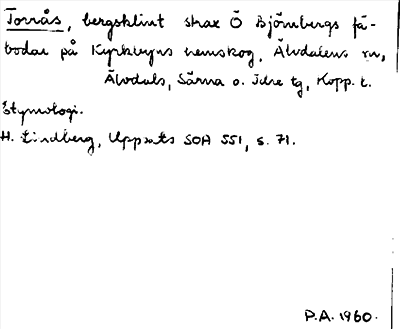 Torrås, bergsklint strax Ö Björnbergs fä-
bodar på Kyrkbyns hemskog, Älvdalens sn,
Älvdals, Särna o. Idre tg, Kopp. l.
Etymologi.
H. Lindberg, Uppsats SOA 551, s. 71.
P.A. 1960.